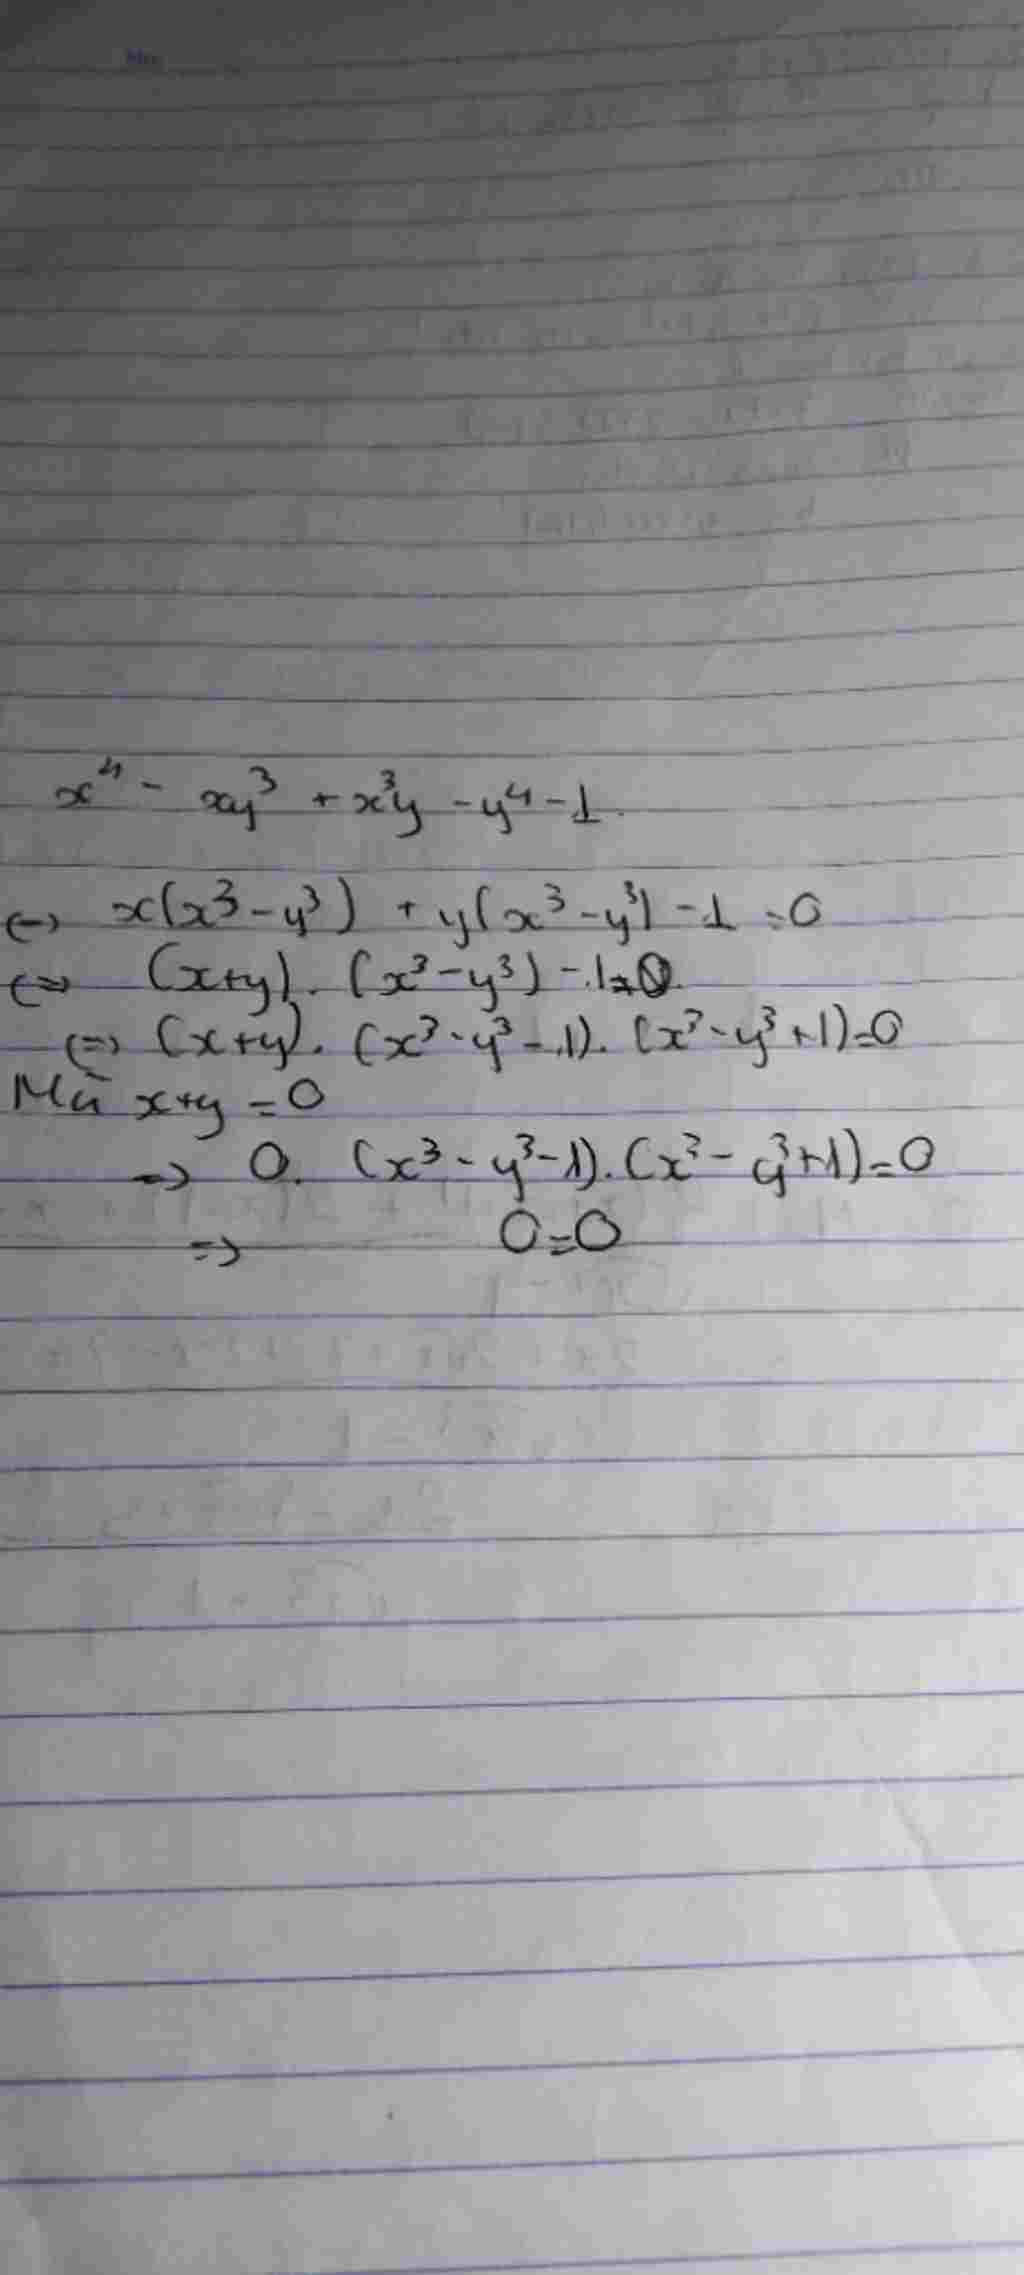 x⁴ - xy³ + x³y - y⁴ - 1.
(=) x(x³ - y³) + y(x³ - y³) - 1 = 0
(=) (x+y). (x³ - y³) - 1 = 0
(=) (x+y). (x³ - y³ - 1). (x³ - y³ + 1) = 0
Mà x+y = 0
=> 0. (x³ - y³ - 1). (x³ - y³ + 1) = 0
=> 0 = 0